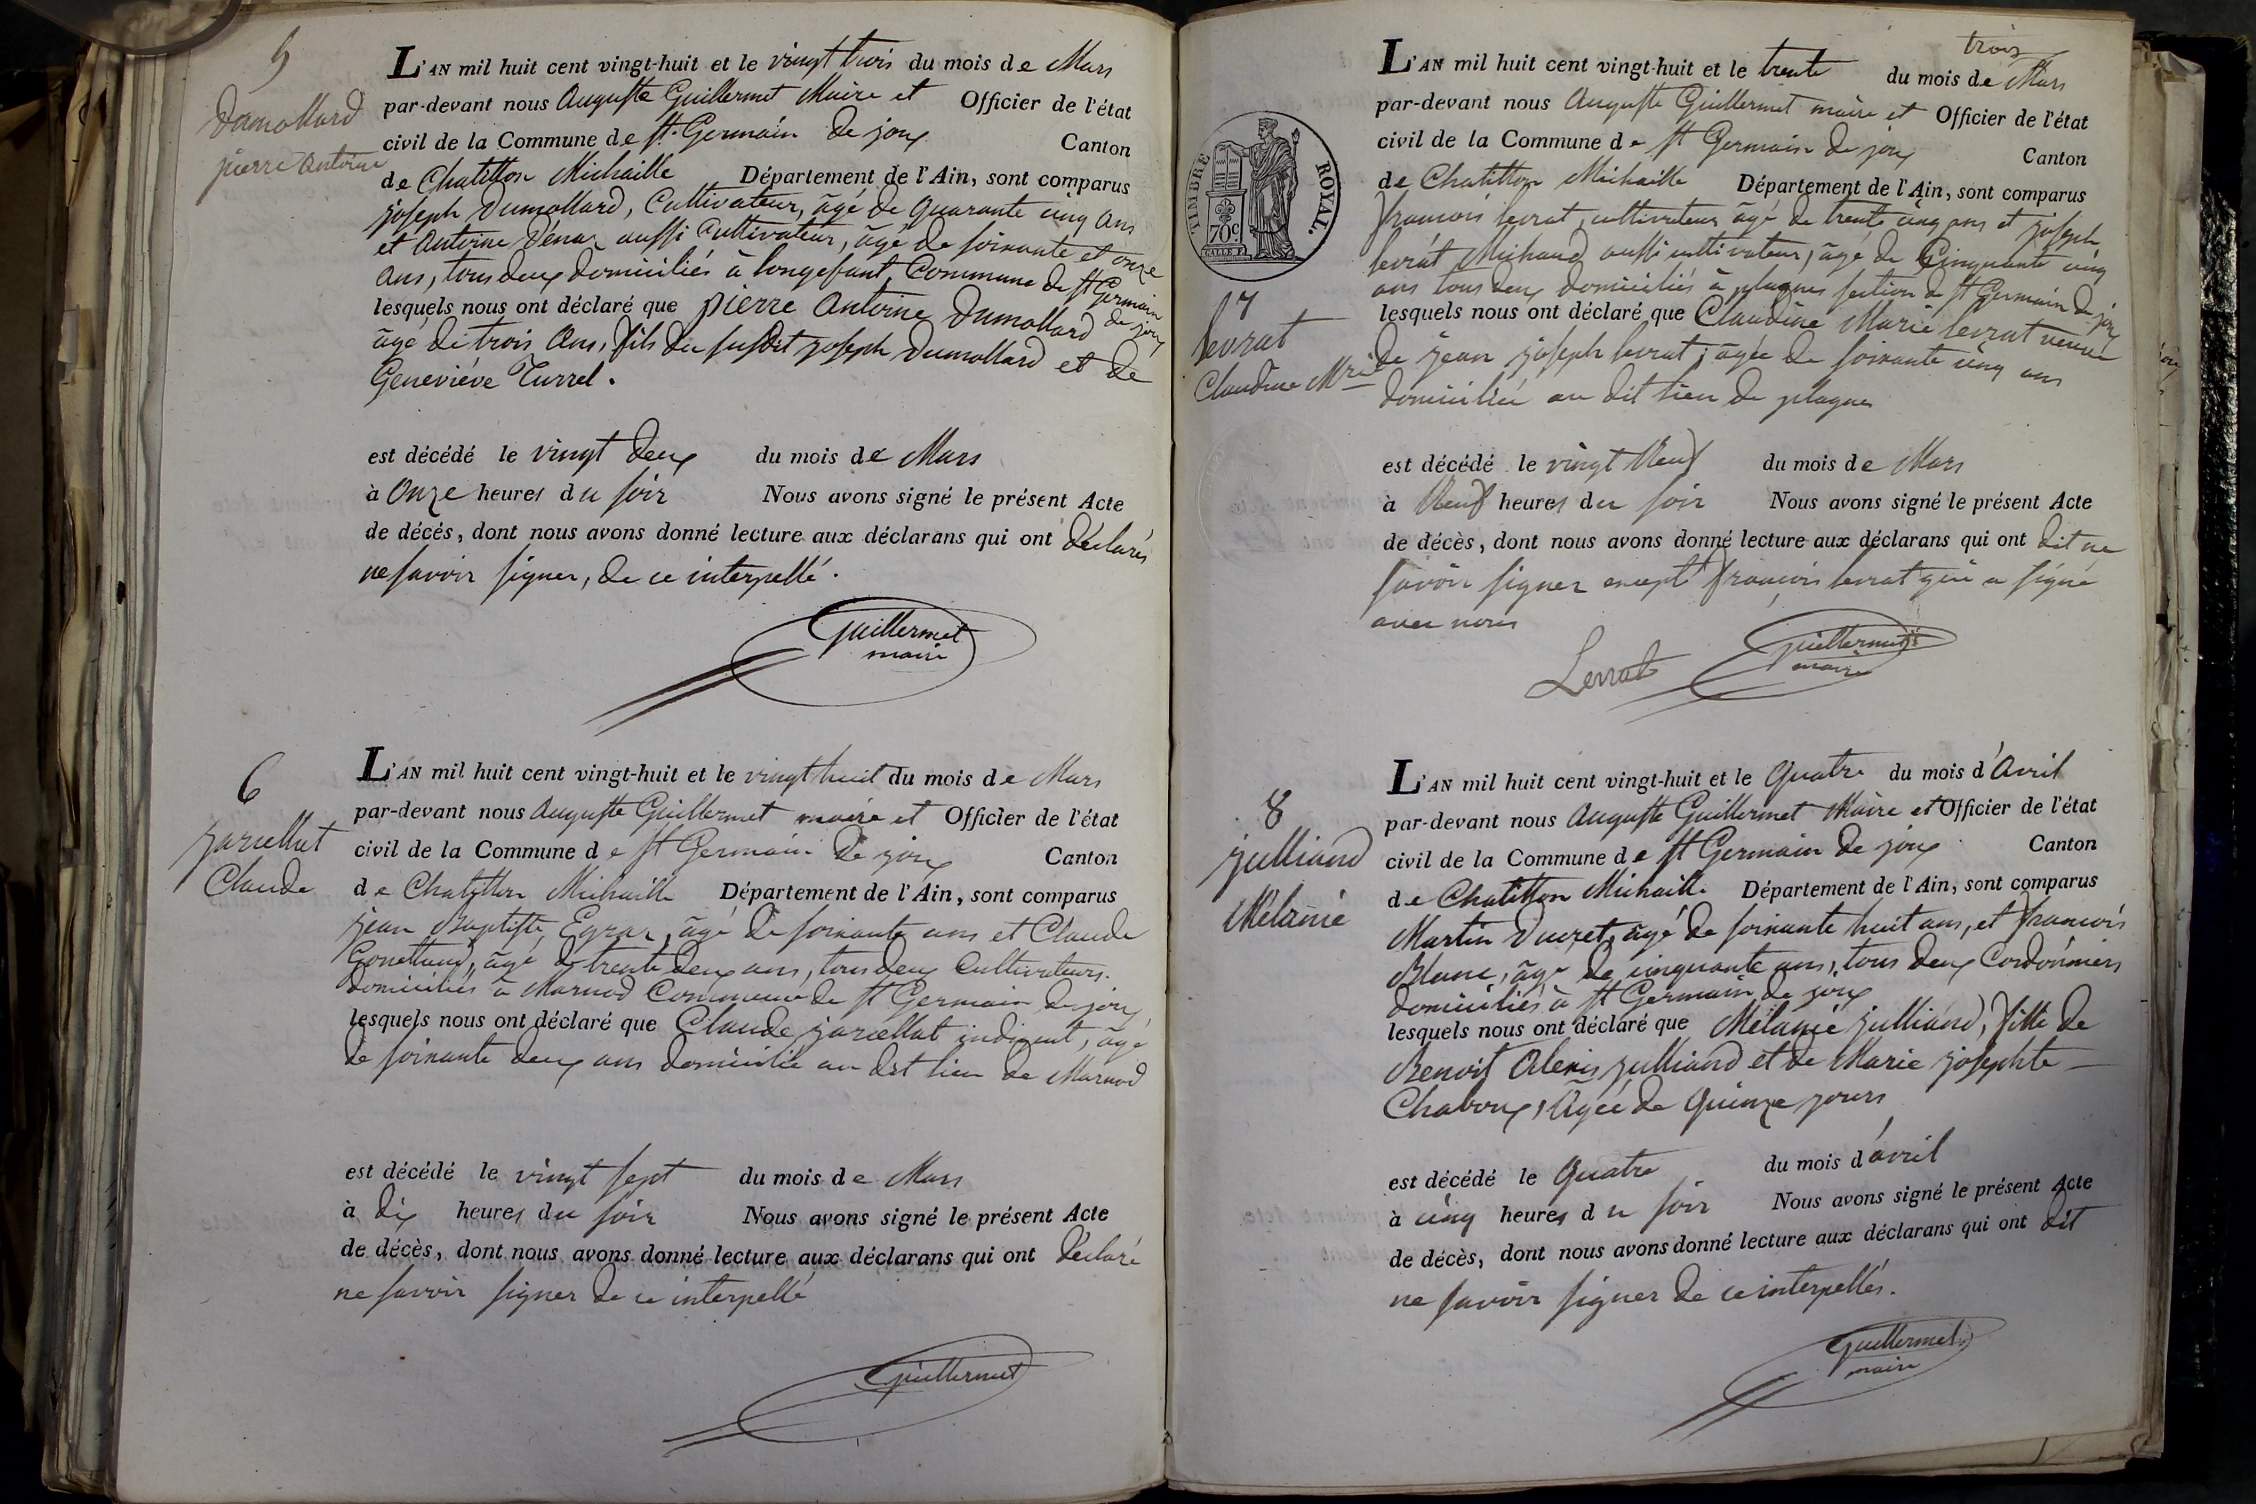 5
Dumollard
pierre Antoine
L'AN mil huit cent vingt-huit et le vingt trois du mois de Mars
par-devant nous Auguste Guillermet Maire et Officier de l'état
civil de la Commune de St. Germain de joux Canton
de Chatillon Michaille Département de l'Ain, sont comparus
joseph Dumollard, Cultivateur, âgé de quarante cinq ans
et Antoine aussi Cultivateur, âgé de soixante et onze
ans, tous deux domiciliés à longefant, Commune de St Germain
de joux
lesquels nous ont déclaré que pierre Antoine Dumollard
âgé de trois Ans, fils du susdit joseph Dumollard et de
Geneviéve Turrel.
est décédé le vingt deux du mois de Mars
à Onze heures du soir Nous avons signé le présent Acte
de décès, dont nous avons donné lecture aux déclarans qui ont déclarés
ne savoir signer, de ce interpellé.
Guillermet
maire
6
jarcellat
Claude
L'AN mil huit cent vingt-huit et le vingt huit du mois de Mars
par-devant nous Auguste Guillermet maire et Officier de l'état
civil de la Commune de St Germain de joux Canton
de Chatillon Michaille Département de l'Ain, sont comparus
jean Baptiste Egraz, âgé de soixante ans et Claude
âgé de trente deux ans, tous deux Cultivateurs.
domiciliés à Marnod Commune de St Germain de joux,
lesquels nous ont déclaré que Claude jarcellat indigent, âgé
de soixante deux ans domicilié au dit lieu de Marnod
est décédé le vingt sept du mois de Mars
à dix heures du soir Nous avons signé le présent Acte
de décès, dont nous avons donné lecture aux déclarans qui ont déclaré
ne savoir signer de ce interpellé
Guillermet
TIMBRE ROYAL.
70c
17
levrat
Claudine Mrie
trois
L'AN mil huit cent vingt-huit et le trente du mois de Mars
par-devant nous Auguste Guillermet maire et Officier de l'état
civil de la Commune de St Germain de joux Canton
de Chatillon Michaille Département de l'Ain, sont comparus
francois levrat, cultivateur âgé de trente cinq ans et joseph
levrat Michaud aussi cultivateur, âgé de Cinquante cinq
ans tous deux domiciliés à plagnes section de St Germain de joux
lesquels nous ont déclaré que Claudine Marie levrat veuve
de jean joseph levrat, âgée de soixante cinq ans
domiciliée au dit lieu de plagnes
est décédé le vingt Neuf du mois de Mars
à Neuf heures du soir Nous avons signé le présent Acte
de décès, dont nous avons donné lecture aux déclarans qui ont dit ne
savoir signer except françois levrat qui a signé
avec nous
Levrat
Guillermet
maire
8
julliand
Mélanie
L'AN mil huit cent vingt-huit et le Quatre du mois d'Avril
par-devant nous Auguste Guillermet Maire et Officier de l'état
civil de la Commune de St Germain de joux Canton
de Chatillon Michaille Département de l'Ain, sont comparus
Martin Ducret, âgé de soixante huit ans, et francois
Blanc, âgé de cinquante ans, tous deux Cordonniers
domiciliés à St Germain de joux
lesquels nous ont déclaré que Mélanie julliand, fille de
Benoit Alexis julliand et de Marie josephte
Chaboux, Agée de Quinze jours
est décédé le Quatre du mois d'avril
à cinq heures du soir Nous avons signé le présent Acte
de décès, dont nous avons donné lecture aux déclarans qui ont dit
ne savoir signer de ce interpellés.
Guillermet
maire